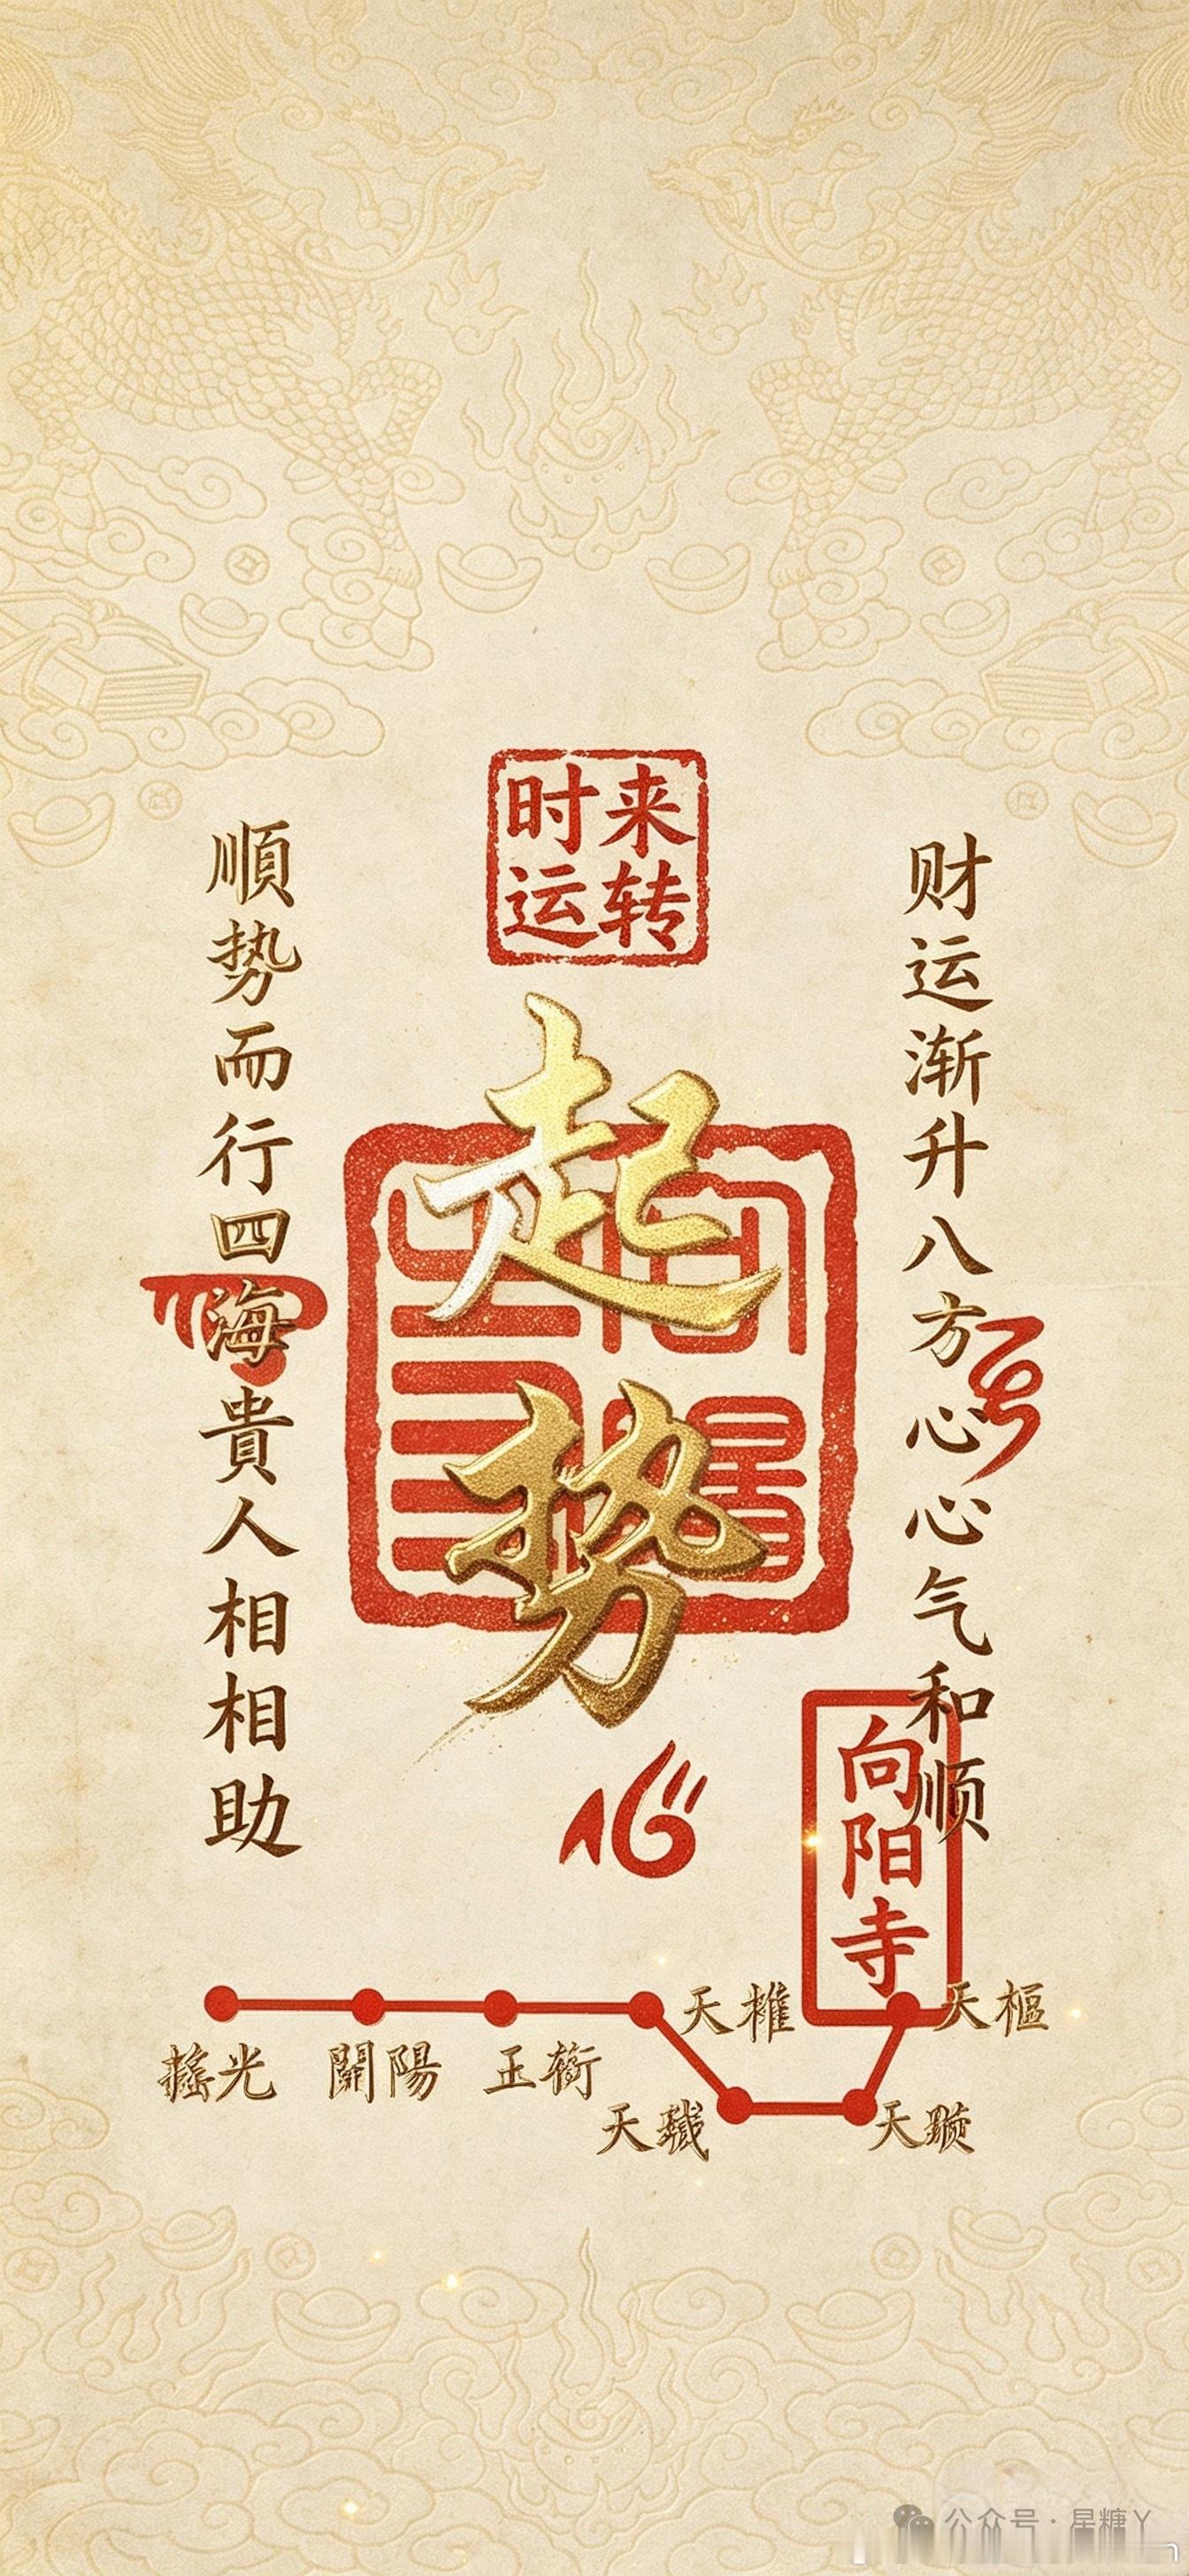 时来
运转
起势
财运渐升八方心心气和顺
順势而行四海貴人相相助
向阳寺
天樞
天
天
天
光
開陽
玉
公众号·星糖丫